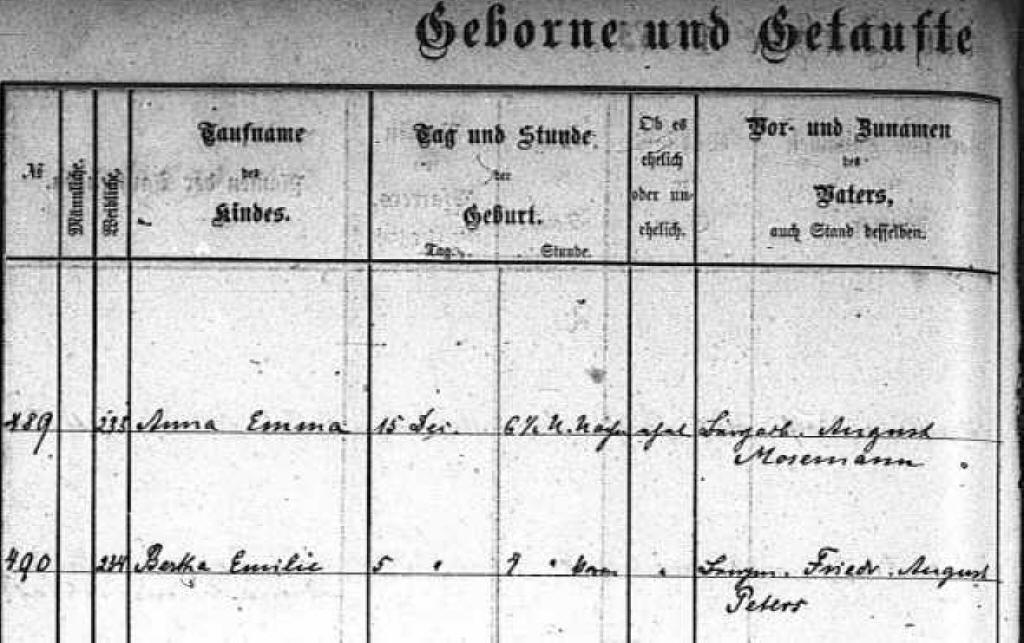 Geborne und Getaufte
№
Männliche.
Weibliche.
Taufname
des
Kindes.
Tag und Stunde
der
Geburt.
Tag.
Stunde.
Ob es
ehelich
oder un-
ehelich.
Vor- und Zunamen
des
Vaters,
auch Stand desselben.
489 Anna Emma 15 Dec. August
Mosemann
490 234 Bertha Emilie 5 " Friedr. August
Peters